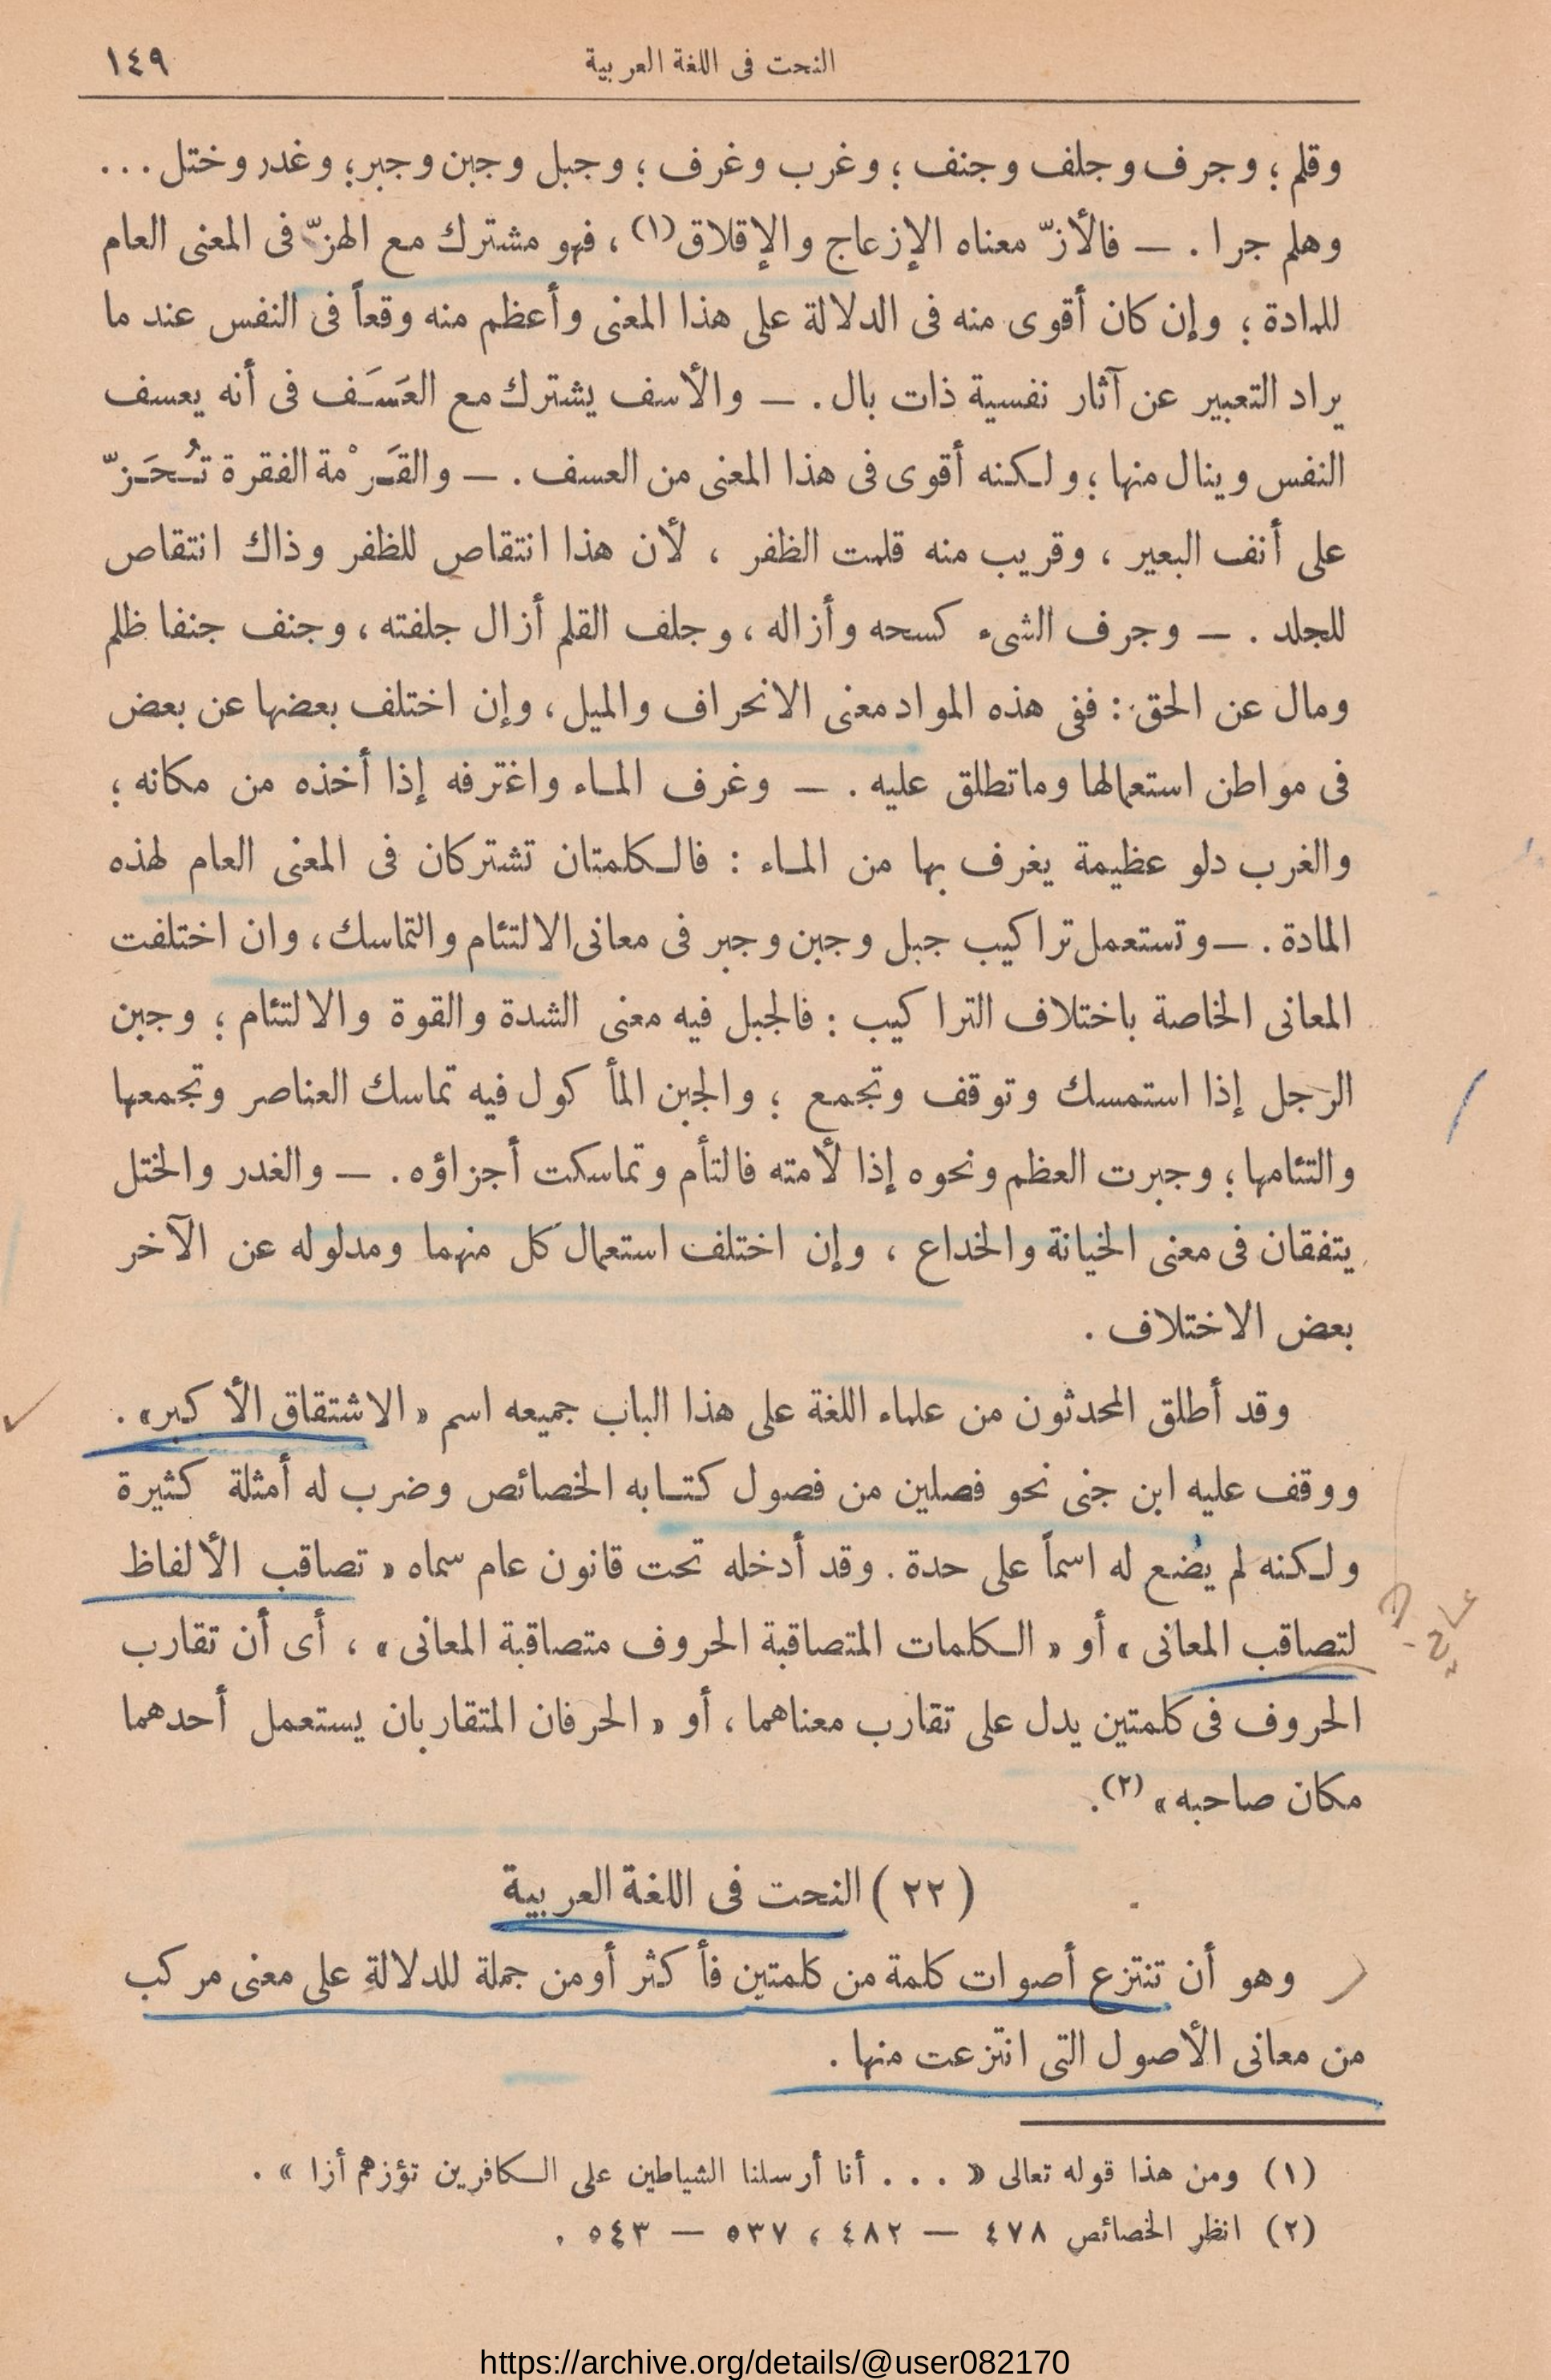 النحت فى اللغة العربية ١٤٩
وقلم ؛ وجرف وجلف وجنف ؛ وغرب وغرف ؛ وجبل وجبن وجبر؛ وغدر وختل ...
وهلم جرا . — فالأزّ معناه الإزعاج والإقلاق(١) ، فهو مشترك مع الهزّ فى المعنى العام
للمادة ؛ وإن كان أقوى منه فى الدلالة على هذا المعنى وأعظم منه وقعاً فى النفس عند ما
يراد التعبير عن آثار نفسية ذات بال . — والأسف يشترك مع العَسَف فى أنه يعسف
النفس وينال منها ؛ ولكنه أقوى فى هذا المعنى من العسف . — والقَرْمة الفقرة تُحَزّ
على أنف البعير ، وقريب منه قلمت الظفر ، لأن هذا انتقاص للظفر وذاك انتقاص
للجلد . — وجرف الشىء كسحه وأزاله ، وجلف القلم أزال جلفته ، وجنف جنفا ظلم
ومال عن الحق : ففى هذه المواد معنى الانحراف والميل ، وإن اختلف بعضها عن بعض
فى مواطن استعمالها وما تطلق عليه . — وغرف الماء واغترفه إذا أخذه من مكانه ؛
والغرب دلو عظيمة يغرف بها من الماء : فالكلمتان تشتركان فى المعنى العام لهذه
المادة . — وتستعمل تراكيب جبل وجبن وجبر فى معانى الالتئام والتماسك ، وان اختلفت
المعانى الخاصة باختلاف التراكيب : فالجبل فيه معنى الشدة والقوة والالتئام ؛ وجبن
الرجل إذا استمسك وتوقف وتجمع ؛ والجبن المأكول فيه تماسك العناصر وتجمعها
والتئامها ؛ وجبرت العظم ونحوه إذا لأمته فالتأم وتماسكت أجزاؤه . — والغدر والختل
يتفقان فى معنى الخيانة والخداع ، وإن اختلف استعمال كل منهما ومدلوله عن الآخر
بعض الاختلاف .
وقد أطلق المحدثون من علماء اللغة على هذا الباب جميعه اسم « الاشتقاق الأكبر» .
ووقف عليه ابن جنى نحو فصلين من فصول كتابه الخصائص وضرب له أمثلة كثيرة
ولكنه لم يضع له اسماً على حدة . وقد أدخله تحت قانون عام سماه « تصاقب الألفاظ
لتصاقب المعانى » أو « الكلمات المتصاقبة الحروف متصاقبة المعانى » ، أى أن تقارب
الحروف فى كلمتين يدل على تقارب معناهما ، أو « الحرفان المتقاربان يستعمل أحدهما
مكان صاحبه » (٢) .
(٢٢) النحت فى اللغة العربية
وهو أن تنتزع أصوات كلمة من كلمتين فأكثر أو من جملة للدلالة على معنى مركب
من معانى الأصول التى انتزعت منها .
(١) ومن هذا قوله تعالى « . . . أنا أرسلنا الشياطين على الكافرين تؤزهم أزا » .
(٢) انظر الخصائص ٤٧٨ — ٤٨٢ ، ٥٣٧ — ٥٤٣ .
https://archive.org/details/@user082170